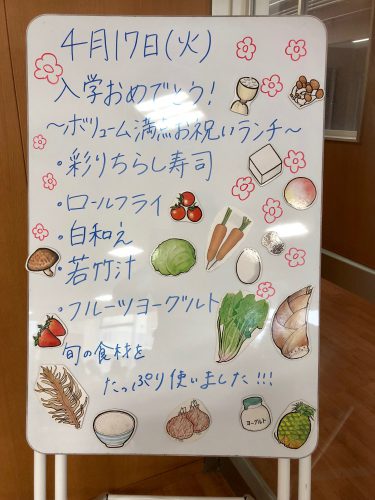 4月17日(火)
入学おめでとう!
～ボリューム満点お祝いランチ～
・彩りちらし寿司
・ロールフライ
・白和え
・若竹汁
・フルーツヨーグルト
旬の食材を
たっぷり使いました!!!
ヨーグルト